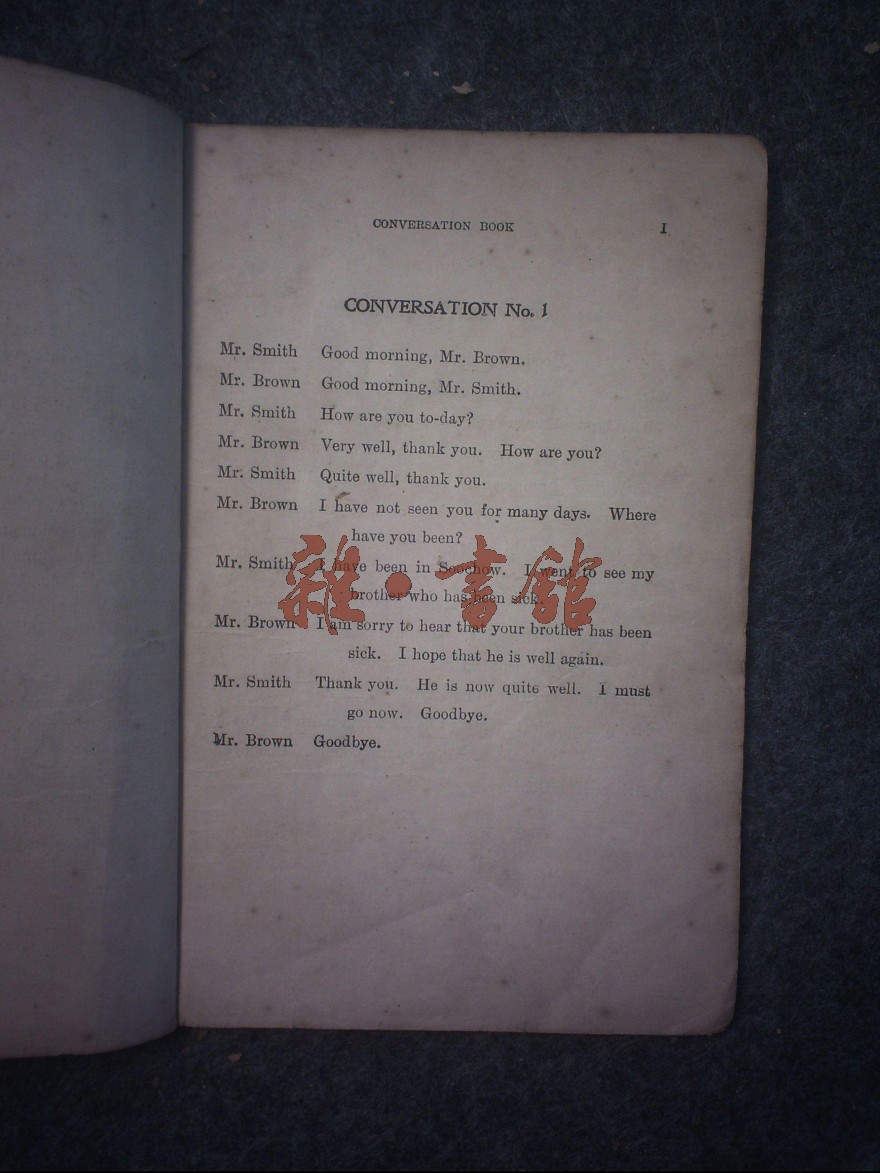 CONVERSATION BOOK 1
CONVERSATION No. 1
Mr. Smith Good morning, Mr. Brown.
Mr. Brown Good morning, Mr. Smith.
Mr. Smith How are you to-day?
Mr. Brown Very well, thank you. How are you?
Mr. Smith Quite well, thank you.
Mr. Brown I have not seen you for many days. Where
have you been?
Mr. Smith I have been in Soochow. I went to see my
brother who has been sick.
Mr. Brown I am sorry to hear that your brother has been
sick. I hope that he is well again.
Mr. Smith Thank you. He is now quite well. I must
go now. Goodbye.
Mr. Brown Goodbye.
雜·書館